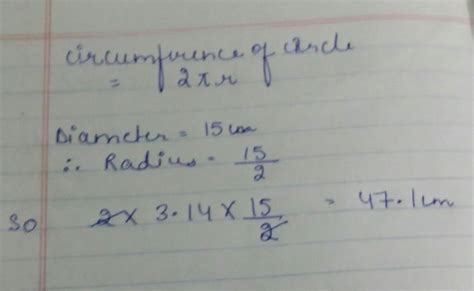 circumference of circle
= 2πr
Diameter = 15 cm
∴ Radius = 15/2
so 2 × 3.14 × 15/2 = 47.1 cm